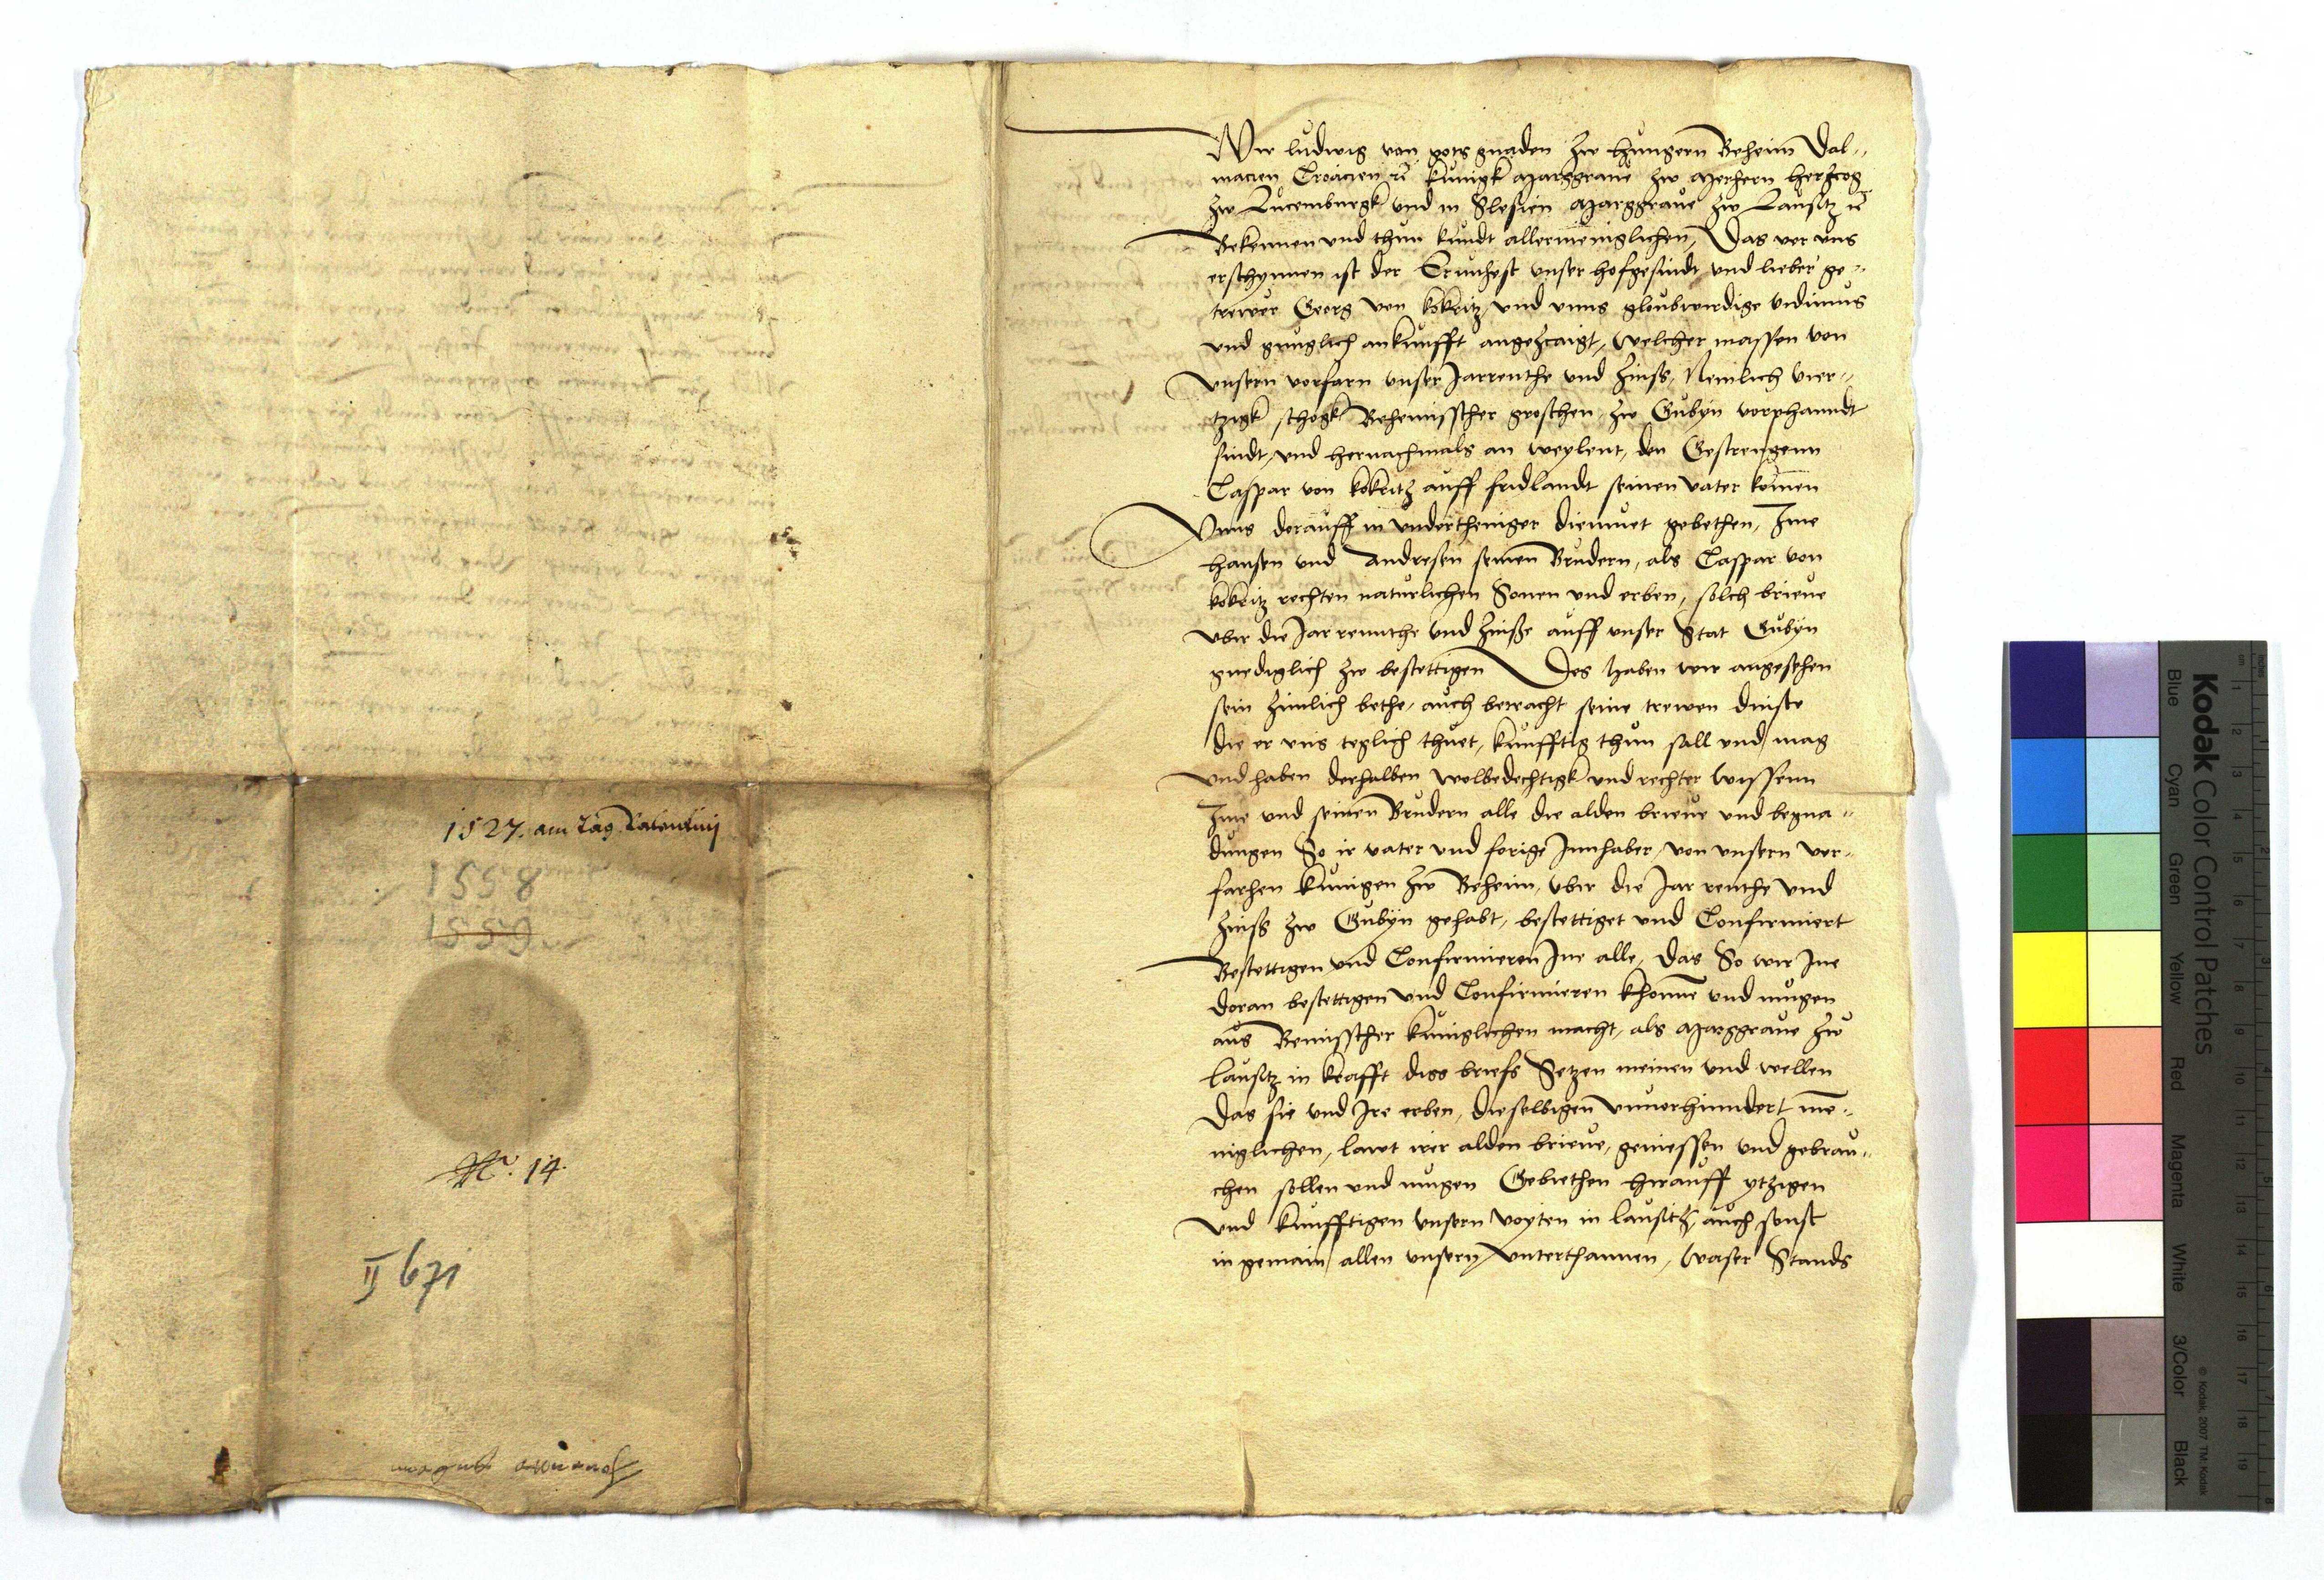 1527. am Tag Valentinij
1558
1559
N. 14.
II 671
Wir ludwig von gots gnaden zw hungern Beheim Dal-
macien Croacien rc kunigk Marggraue zw Merhern hertzog
zw Lucemburgk vnd in Slesien Marggraue zw Lausitz rc
Bekennen vnd thun kundt allermeniglichen, Das vor vns
erschynnen ist der Ernuhest vnser hofgesindt vnd lieber ge-
trewer Georg von kokritz, vnd vnns gloubwirdige vidimus
vnd gruglich ankunfft angezcaigt, welcher massen von
vnsern vorfarn vnser Jarrenthe vnd Zinss, Nemlich vier-
tzigk schogk Behemisscher groschen zw Gubyn vorphanndt
sindt, vnd hernachmals an weylent, den Gestrengenn
Caspar von kokritz auff fridlandt seinen vater komen
Vnns dorauff in vndertheniger diemuet gebethen, Ime
hansen vnd Andresen seinen Brudern, als Caspar von
kokritz rechten naturlichen Sonen vnd erben, solch brieue
vber die Jar rennthe vnd Zinsse auff vnser Stat Gubyn
gnediglich zw bestettigen Des haben wir angesehen
sein zimlich bethe, auch betracht seine trewen dinste
die er vns teglich thuet, kunfftig thun sall vnd mag
vnd haben derhalben wolbedechtigk vnd rechter wissenn
Ime vnd seinen Brudern alle die alden brieue vnd begna-
dungen So ir vater vnd forige Innhaber, von vnsern vor-
farhen kunigen zw Beheim, vber die Jar renthe vnd
Zinss zw Gubyn gehabt, bestettiget vnd Confirmiert
Bestettigen vnd Confirmieren Ine alle, das So wir Ine
doran bestettigen vnd Confirmieren khonne vnd mugen
aus Bemisscher kuniglichen macht, als Marggraue zw
lausitz in krafft diss briefs Setzen meinen vnd wellen
Das sie vnd Ire erben, dieselbigen vnuerhinndert me-
niglichen, lawt irer alden brieue, geniessen vnd gebrau-
chen sollen vnd mugen Gebiethen hirauff ytzigen
vnd kunfftigen vnsern voyten in lausitz, auch sonst
in gemain allen vnsern vnterthannen, waser Stands
Kodak Color Control Patches
Blue Cyan Green Yellow Red Magenta White 3/Color Black
© Kodak, 2007 TM: Kodak